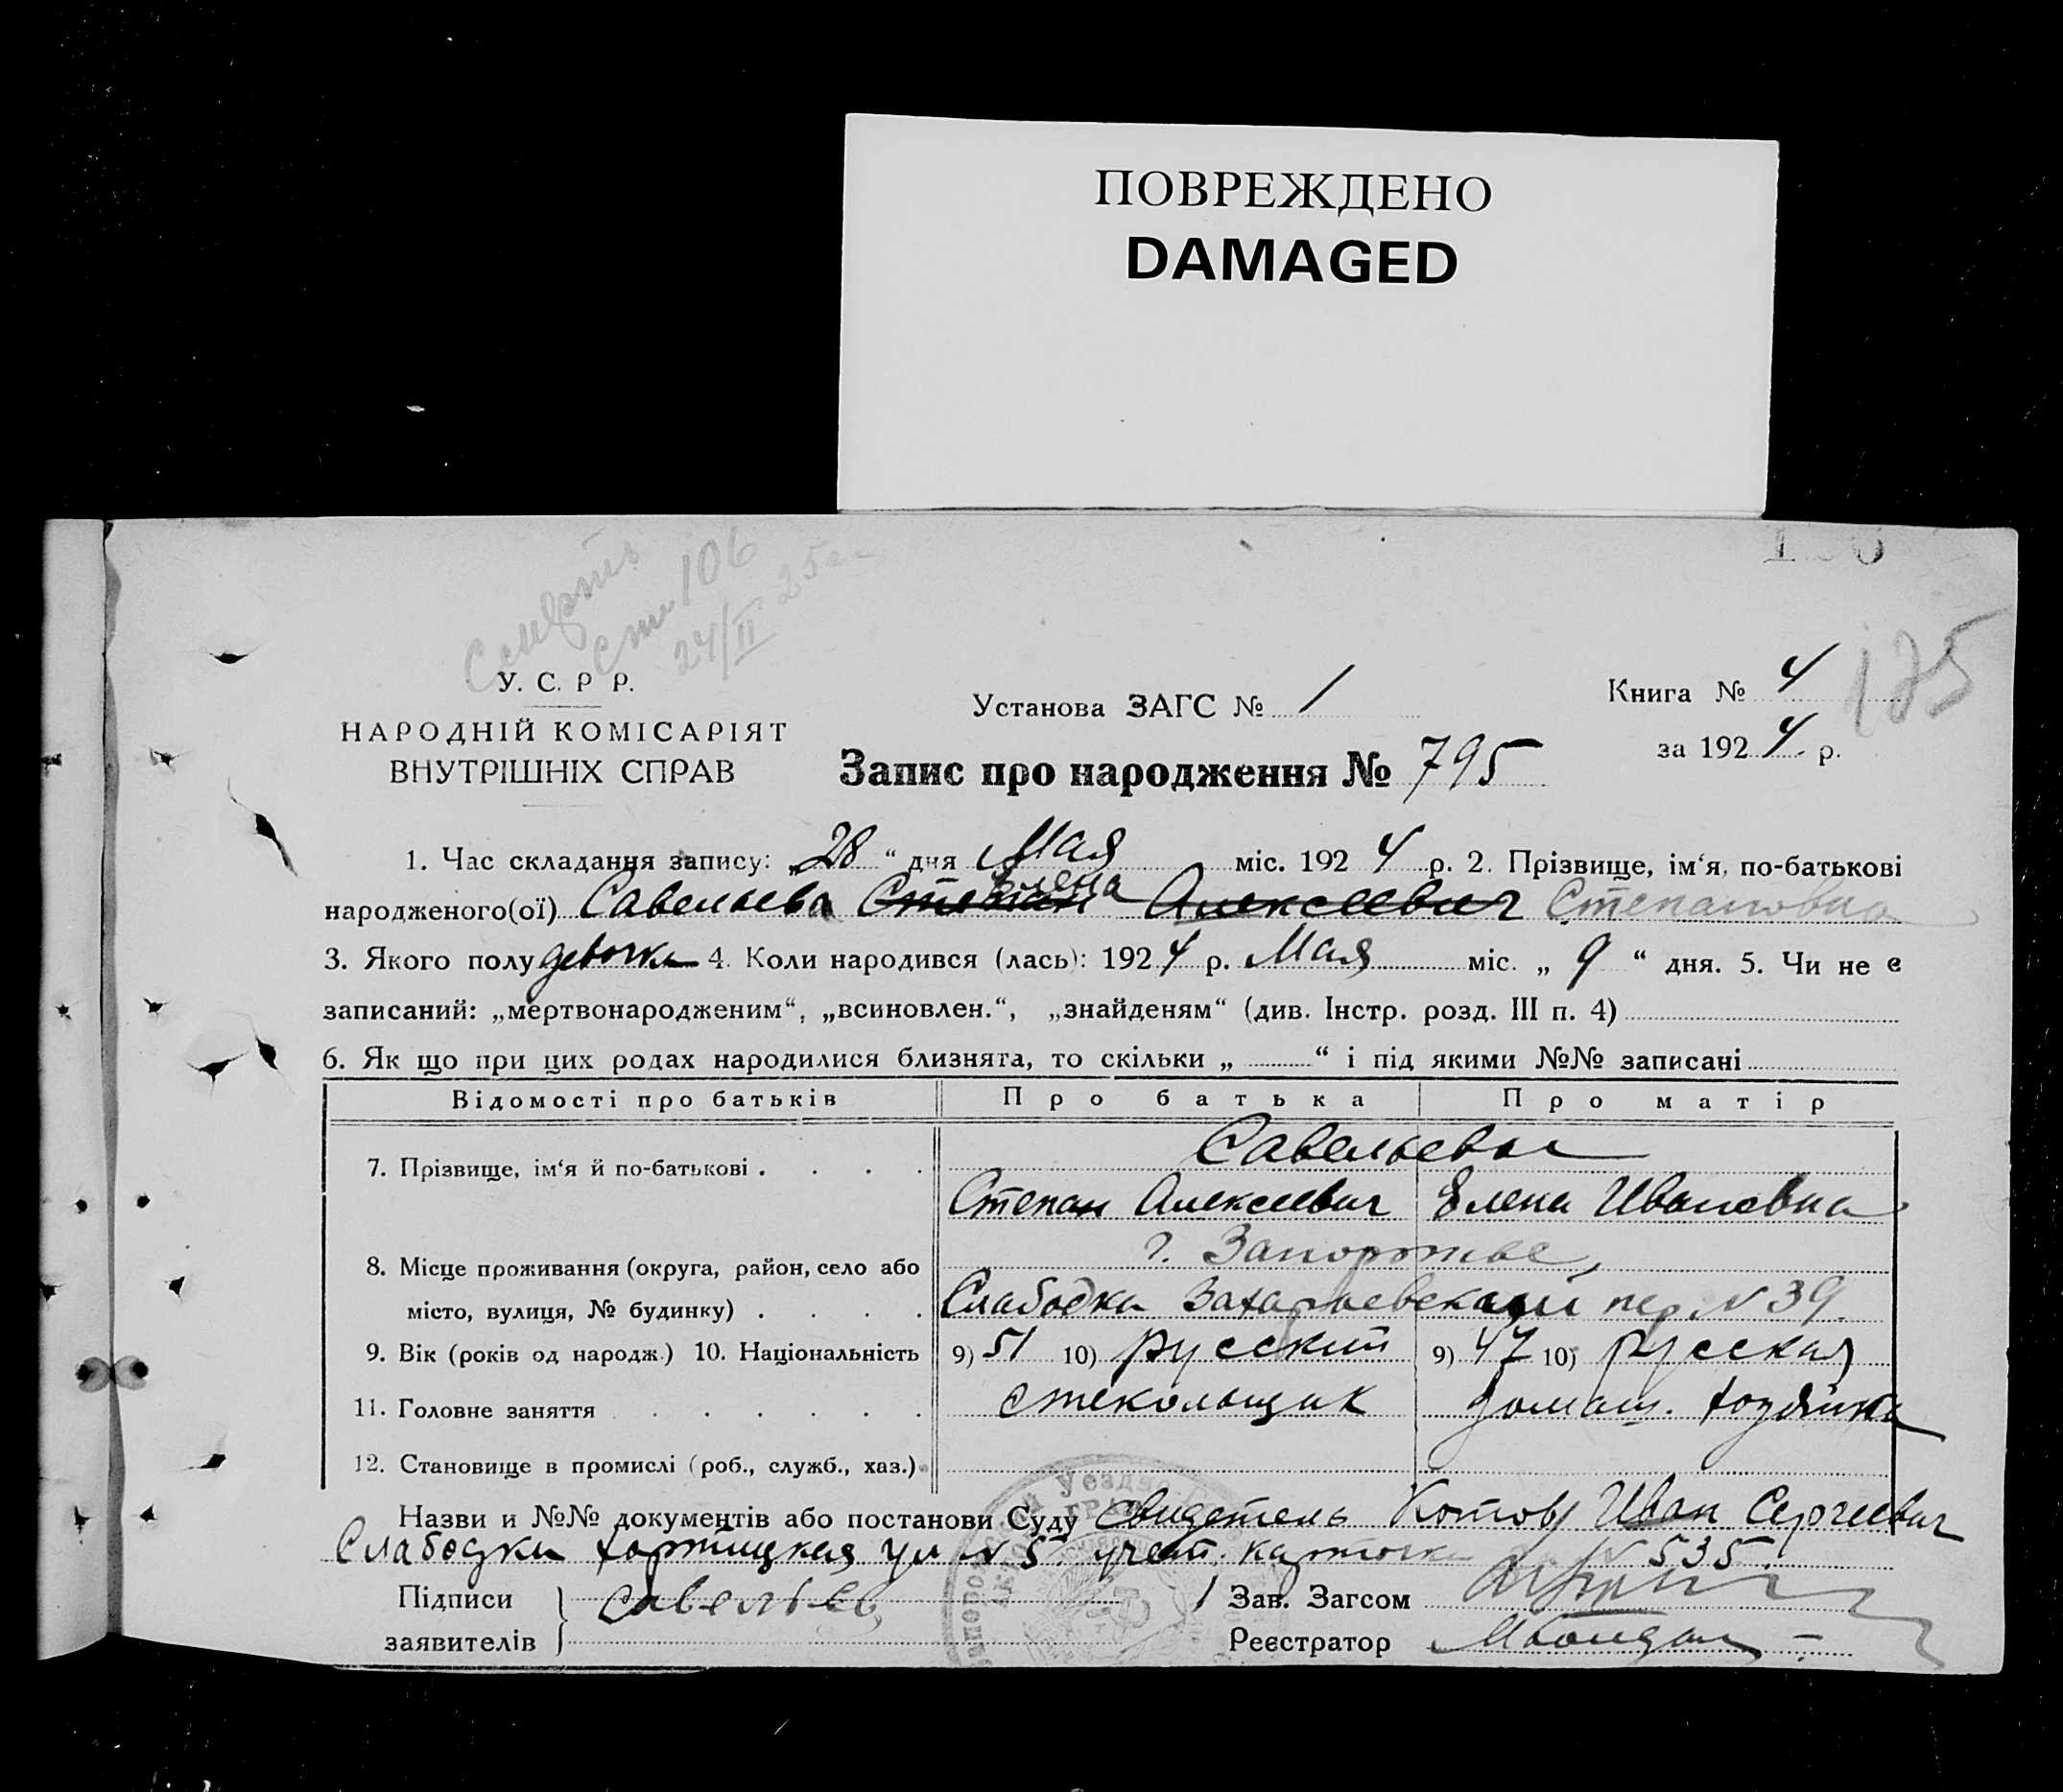 ПОВРЕЖДЕНО
DAMAGED
Смерть
ст 106
24/II 25г
175
У. С. Р Р.
НАРОДНІЙ КОМІСАРІЯТ
ВНУТРІШНІХ СПРАВ
Установа ЗАГС № 1
Книга № 4
за 1924 р.
Запис про народження № 795
1. Час складання запису: „28“ дня Мая міс. 1924 р. 2. Прізвище, ім‘я, по-батькові
Елена
народженого(ої) Савельева Степан Алексеевич Степановна
3. Якого полу девочка 4. Коли народився (лась): 1924 р. Мая міс. „9“ дня. 5. Чи не є
записаний: „мертвонародженим“, „всиновлен.“, „знайденям“ (див. Інстр. розд. III п. 4)
6. Як що при цих родах народилися близнята, то скільки „ “ і під якими №№ записані
Відомості про батьків Про батька Про матір
Савельевы
7. Прізвище, ім‘я й по-батькові . . . .
Степан Алексеевич Елена Ивановна
г. Запорожье,
8. Місце проживання (округа, район, село або
місто, вулиця, № будинку) . . . . Слабодка Захарьевский пер. N 39
9. Вік (років од народж.) 10. Національність 9) 51 10) русский 9) 47 10) русская
11. Головне заняття . . . . . . стекольщик домаш. хозяйка
12. Становище в промислі (роб., служб., хаз.)
Назви и №№ документів або постанови Суду свидетель Котов Иван Сергеевич
Слабодки Хортицкая ул N 5 учет. карточка N 535.
Підписи Савельев Зав. Загсом
заявителів Реєстратор